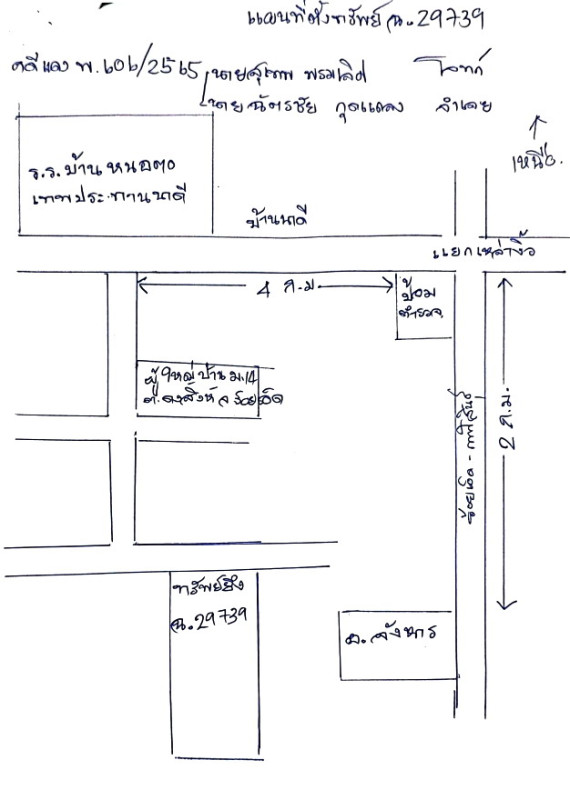 แผนที่ตั้งทรัพย์ ฉ.29739
คดีแดง พ.606/2565 นายสุเทพ พรมเลิศ โจทก์
นายฉัตรชัย กุดแถลง จำเลย
เหนือ
ร.ร.บ้านหนอง
เทพประทานนาดี
บ้านนาดี
แยกเหล่างิ้ว
4 ก.ม
ป้อม
ตำรวจ
ผู้ใหญ่บ้าน ม.14
ต.ดงสิงห์ จ.ร้อยเอ็ด
ร้อยเอ็ด - กาฬสินธุ์
2 ก.ม.
ทรัพย์ยึด
ฉ.29739
อ.จังหาร